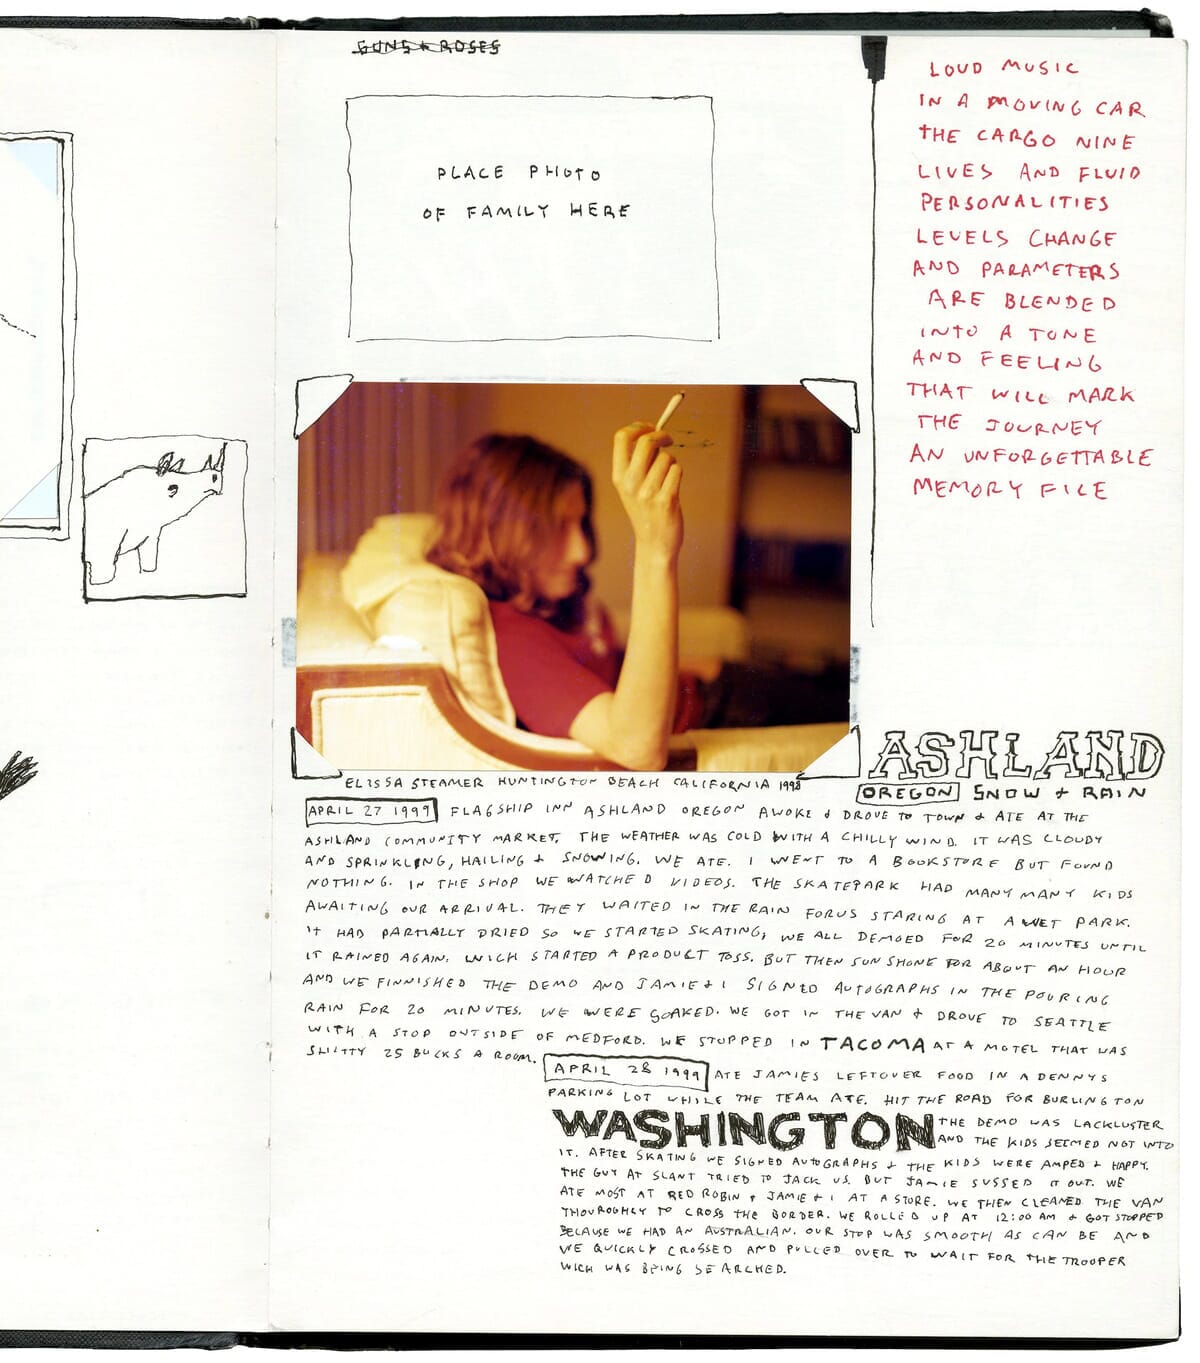 GUNS & ROSES
PLACE PHOTO
OF FAMILY HERE
LOUD MUSIC
IN A MOVING CAR
THE CARGO NINE
LIVES AND FLUID
PERSONALITIES
LEVELS CHANGE
AND PARAMETERS
ARE BLENDED
INTO A TONE
AND FEELING
THAT WILL MARK
THE JOURNEY
AN UNFORGETTABLE
MEMORY FILE
ELISSA STEAMER HUNTINGTON BEACH CALIFORNIA 1998
ASHLAND
OREGON SNOW + RAIN
APRIL 27 1999 FLAGSHIP INN ASHLAND OREGON AWOKE & DROVE TO TOWN & ATE AT THE
ASHLAND COMMUNITY MARKET, THE WEATHER WAS COLD WITH A CHILLY WIND. IT WAS CLOUDY
AND SPRINKLING, HAILING & SNOWING. WE ATE. I WENT TO A BOOKSTORE BUT FOUND
NOTHING. IN THE SHOP WE WATCHED VIDEOS. THE SKATEPARK HAD MANY MANY KIDS
AWAITING OUR ARRIVAL. THEY WAITED IN THE RAIN FOR US STARING AT A WET PARK.
IT HAD PARTIALLY DRIED SO WE STARTED SKATING, WE ALL DEMOED FOR 20 MINUTES UNTIL
IT RAINED AGAIN. WICH STARTED A PRODUCT TOSS. BUT THEN SUN SHONE FOR ABOUT AN HOUR
AND WE FINNISHED THE DEMO AND JAMIE & I SIGNED AUTOGRAPHS IN THE POURING
RAIN FOR 20 MINUTES. WE WERE SOAKED. WE GOT IN THE VAN & DROVE TO SEATTLE
WITH A STOP OUTSIDE OF MEDFORD. WE STOPPED IN TACOMA AT A MOTEL THAT WAS
SHITTY 25 BUCKS A ROOM.
APRIL 28 1999 ATE JAMIES LEFTOVER FOOD IN A DENNYS
PARKING LOT WHILE THE TEAM ATE. HIT THE ROAD FOR BURLINGTON
WASHINGTON THE DEMO WAS LACKLUSTER
AND THE KIDS SEEMED NOT INTO
IT. AFTER SKATING WE SIGNED AUTOGRAPHS & THE KIDS WERE AMPED & HAPPY.
THE GUY AT SLANT TRIED TO JACK US. BUT JAMIE SUSSED IT OUT. WE
ATE MOST AT RED ROBIN & JAMIE & I AT A STORE. WE THEN CLEANED THE VAN
THOUROUGHLY TO CROSS THE BORDER. WE ROLLED UP AT 12:00 AM & GOT STOPPED
BECAUSE WE HAD AN AUSTRALIAN. OUR STOP WAS SMOOTH AS CAN BE AND
WE QUICKLY CROSSED AND PULLED OVER TO WAIT FOR THE TROOPER
WICH WAS BEING SEARCHED.